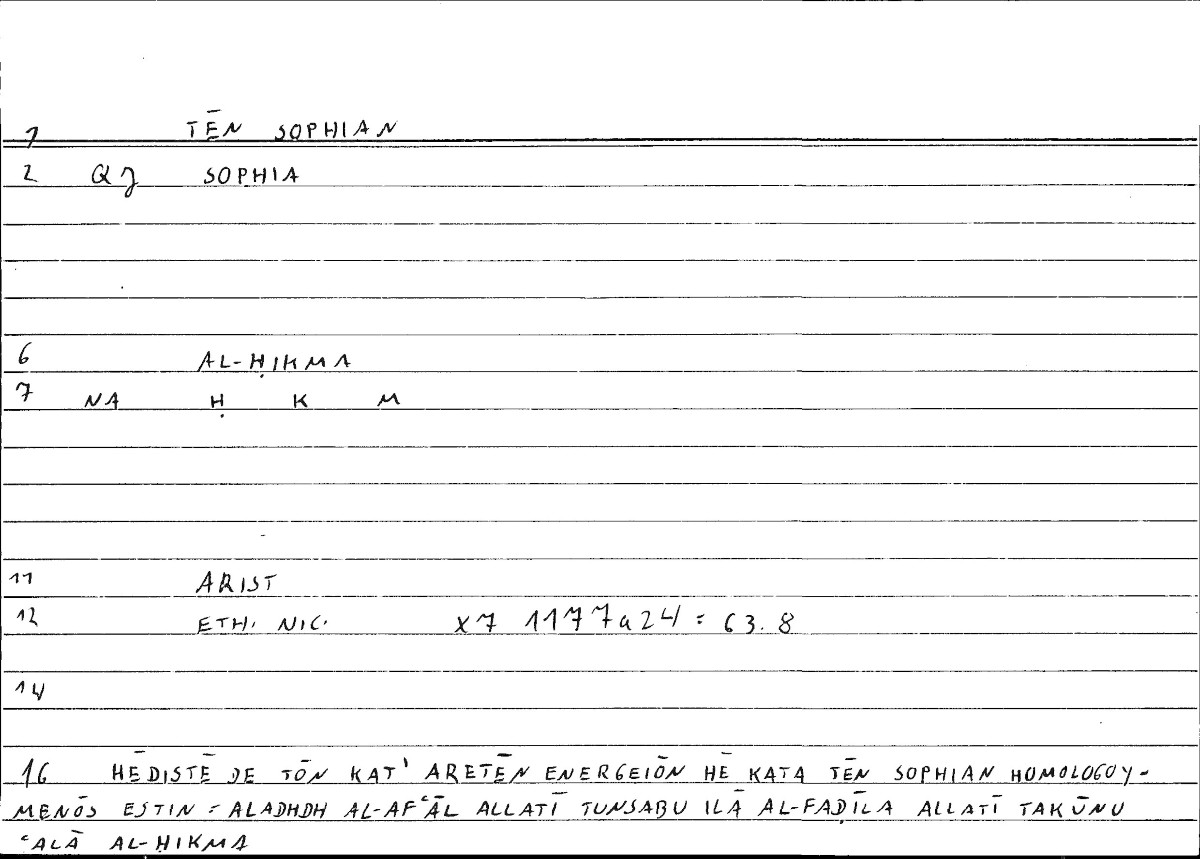 1 TĒN SOPHIAN
2 QJ SOPHIA
6 AL-ḤIKMA
7 NA Ḥ K M
11 ARIST
12 ETH. NIC. X7 1177a24 = 63.8
14
16 HĒDISTĒ DE TŌN KAT' ARETĒN ENERGEIŌN HĒ KATA TĒN SOPHIAN HOMOLOGOY-
MENŌS ESTIN = ALADHDH AL-AFʿĀL ALLATĪ TUNSABU ILĀ AL-FAḌĪLA ALLATĪ TAKŪNU
ʿALĀ AL-ḤIKMA